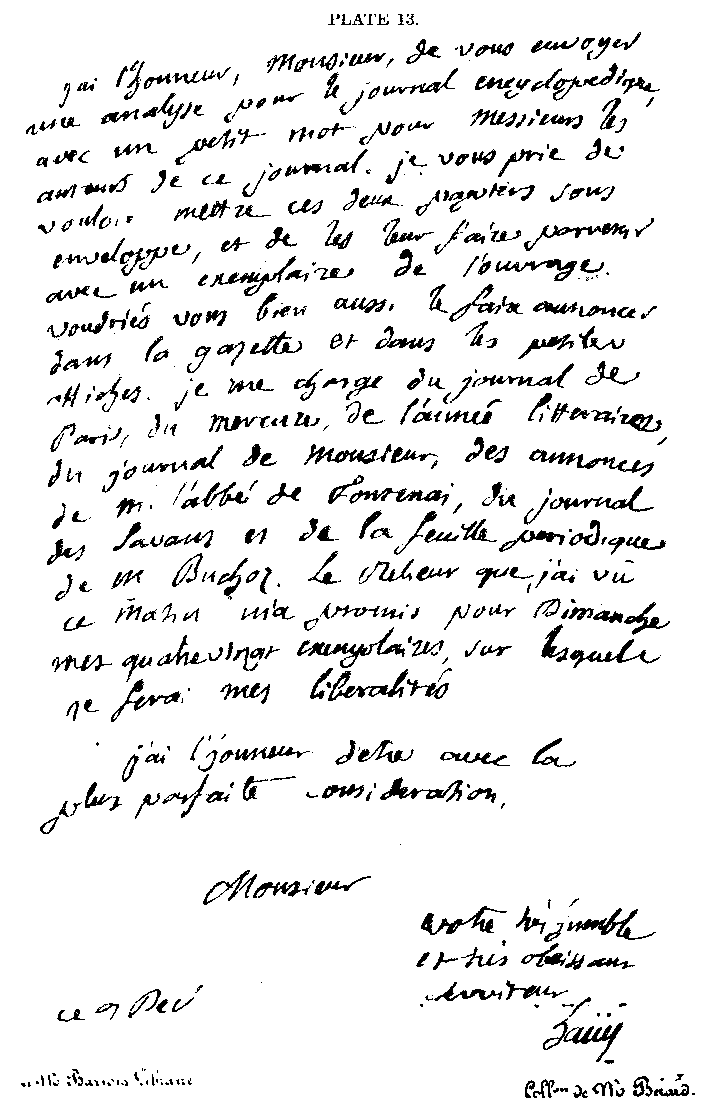 PLATE 13.
j'ai l'honneur, Monsieur, de vous envoyer
une analyse pour le journal encyclopedique,
avec un petit mot pour Messieurs les
auteurs de ce journal. je vous prie de
vouloir mettre ces deux papiers sous
enveloppe, et de les leur faire parvenir
avec un exemplaire de l'ouvrage.
voudriés vous bien aussi le faire annoncer
dans la gazette et dans les petites
affiches. je me charge du journal de
Paris, du mercure, de l'année litteraire,
du journal de Monsieur, des annonces
de m. l'abbé de Fontenai, du journal
des Savans et de la feuille periodique
de m Buchoz. Le relieur que j'ai vû
ce matin m'a promis pour Dimanche
mes quatrevingt exemplaires, sur lesquels
je ferai mes liberalités
j'ai l'honneur detre avec la
plus parfaite consideration,
Monsieur
votre très humble
et très obeissant
serviteur
haüy
ce 9 Dec
Mr Barrois Libraire
Collon de Mr Berard.